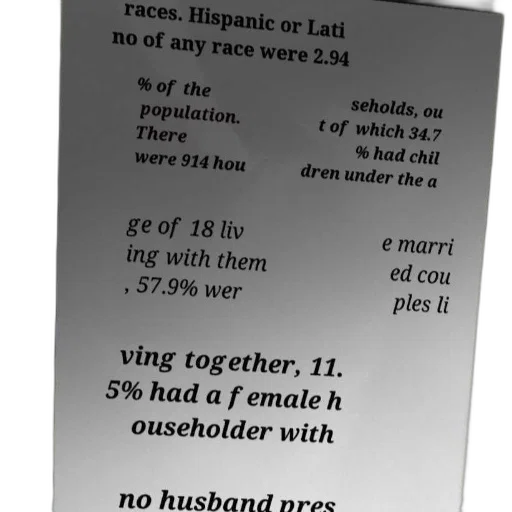 races. Hispanic or Lati
no of any race were 2.94
% of the
population.
There
were 914 hou
seholds, ou
t of which 34.7
% had chil
dren under the a
ge of 18 liv
ing with them
, 57.9% wer
e marri
ed cou
ples li
ving together, 11.
5% had a female h
ouseholder with
no husband pres